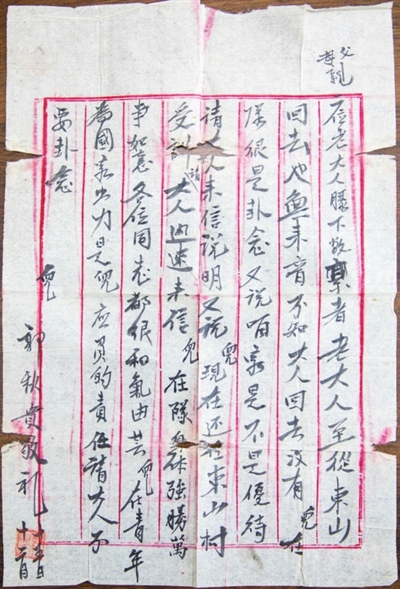 父母親
位老大人膝下敬禀者老大人至從東山
回去也無來音不知大人回去沒有兒在
隊很是卦念又說咱家是不是優待
請大人來信說明又說兒現在还在東山村
受訓請大人迅速來信兒在隊身体強勝萬
事如意各位同志都很和氣由其兒在青年
為國家出力是兒應負的責任請大人不
要卦念
兒郭秋貴敬礼